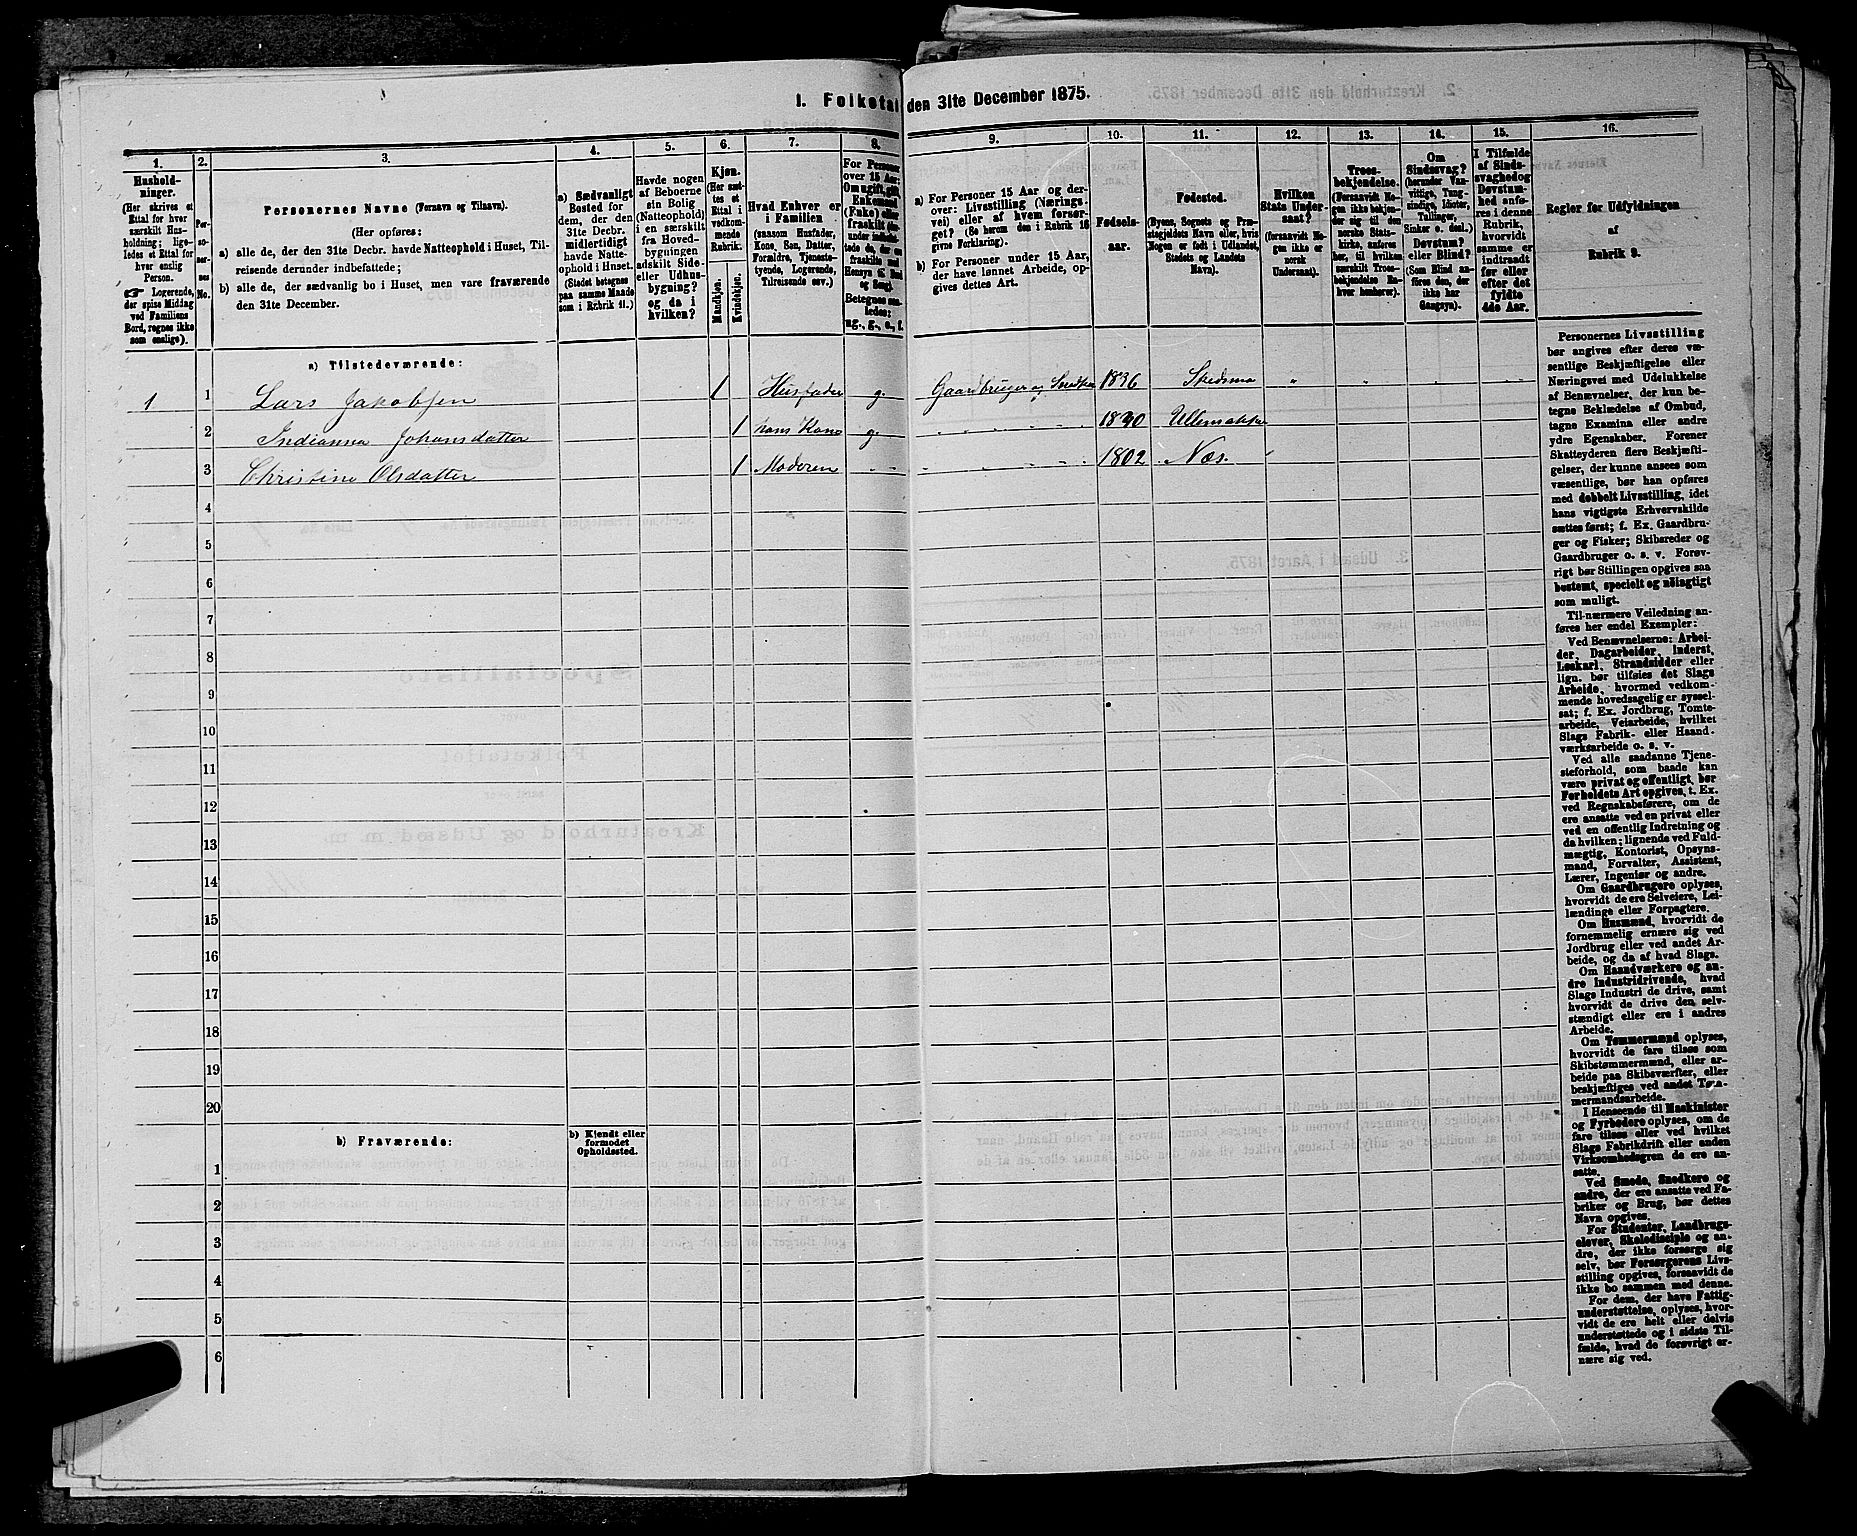 1. Folketal den 31te December 1875.
1.
Hushold-
ninger.
(Her skrives et
Ettal for hver
særskilt Hus-
holdning; lige-
ledes et Ettal for
hver enslig
Person.
☞ Logerende,
der spise Middag
ved Familiens
Bord, regnes ikke
som enslige).
2.
Per-
so-
ner-
nes
No.
3.
Personernes Navne (Fornavn og Tilnavn).
(Her opføres:
a) alle de, der den 31te Decbr. havde Natteophold i Huset, Til-
reisende derunder indbefattede;
b) alle de, der sædvanlig bo i Huset, men vare fraværende
den 31te December.
4.
a) Sædvanligt
Bosted for
dem, der den
31te Decbr.
midlertidigt
havde Natte-
ophold i Huset.
(Stedet betegnes
paa samme Maade
som i Rubrik 11.)
5.
Havde nogen
af Beboerne
sin Bolig
(Natteophold)
i en særskilt
fra Hoved-
bygningen
adskilt Side-
eller Udhus-
bygning?
og da i
hvilken?
6.
Kjøn.
(Her sæt-
tes et
Ettal i
vedkom-
mende
Rubrik.
Mandkjøn.
Kvindekjøn.
7.
Hvad Enhver er
i Familien
(saasom Husfader,
Kone, Søn, Datter,
Forældre, Tjeneste-
tyende, Logerende,
Tilreisende osv.)
8.
For Personer
over 15 Aar:
Om ugift, gift,
Enkemand
(Enke) eller
fraskilt
Betegnes saa-
ledes:
ug., g., e., f.
9.
a) For Personer 15 Aar og der-
over: Livsstilling (Nærings-
vei) eller af hvem forsør-
get? (Se herom den i Rubrik 16
givne Forklaring).
b) For Personer under 15 Aar,
der have lønnet Arbeide, op-
gives dettes Art.
10.
Fødsels-
aar.
11.
Fødested.
(Byens, Sognets og Præ-
stegjeldets Navn eller, hvis
Nogen er født i Udlandet,
Stedets og Landets
Navn).
12.
Hvilken
Stats Under-
saat?
(forsaavidt No-
gen ikke er
norsk
Undersaat).
13.
Troes-
bekjendelse.
(Forsaavidt No-
gen ikke bekjen-
der sig til den
norske Stats-
kirke, anføres
her, til hvilken
særskilt Troes-
bekjendelse En-
hver henhører).
14.
Om
Sindssvag?
(herunder Van-
vittige, Tung-
sindige, Idioter,
Tullinger,
Sinker o. desl.)
Døvstum?
eller Blind?
(Som Blind an-
føres den, der
ikke har
Gangsyn).
15.
I Tilfælde
af Sinds-
svaghed og
Døvstum-
hed anfø-
res i denne
Rubrik,
hvorvidt
samme er
indtraadt
før eller
efter det
fyldte
4de Aar.
16.
Regler for Udfyldningen
af
Rubrik 9.
a) Tilstedeværende:
1 1 Lars Jakobsen 1 Husfader g. Gaardbruger og Snedker 1836 Skedsmo " " " " "
2 Indianna Johansdatter 1 hans Kone g. " " " " " Ullensaker
3 Christine Olsdatter 1 Moderen " " " " " " 1802 Næs.
4
5
6
7
8
9
10
11
12
13
14
15
16
17
18
19
20
b) Fraværende:
b) Kjendt eller
formodet
Opholdssted.
1
2
3
4
5
6
Personernes Livsstilling
bør angives efter deres væ-
sentlige Beskjæftigelse eller
Næringsvei med Udelukkelse
af Benævnelser, der kun be-
tegne Beklædelse af Ombud,
tagne Examina eller andre
ydre Egenskaber. Forener
Skatteyderen flere Beskjæfti-
gelser, der kunne ansees som
væsentlige, bør han opføres
med dobbelt Livsstilling, idet
hans vigtigste Erhvervskilde
sættes først; f. Ex. Gaardbru-
ger og Fisker; Skibsreder og
Gaardbruger o. s. v. Forøv-
rigt bør Stillingen opgives saa
bestemt, specielt og nöiagtigt
som muligt.
Til nærmere Veiledning an-
føres her endel Exempler:
Ved Benævnelserne: Arbei-
der, Dagarbeider, Inderst,
Løskarl, Strandsidder eller
lign. bør tilføies det Slags
Arbeide, hvormed vedkom-
mende hovedsagelig er syssel-
sat; f. Ex. Jordbrug, Tomte-
arbeide, Veiarbeide, hvilket
Slags Fabrik- eller Haand-
værksarbeide o. s. v.
Ved alle saadanne Tjene-
steforhold, som baade kan
være privat og offentligt, bør
Forholdets Art opgives, t. Ex.
ved Regnskabsførere, om de
ere ansatte ved en privat eller
ved en offentlig Indretning og
da hvilken; lignende ved Fuld-
mægtig, Kontorist, Opsyns-
mand, Forvalter, Assistent,
Lærer, Ingeniør og andre.
Om Gaardbrugere oplyses,
hvorvidt de ere Selveiere, Lei-
lændinge eller Forpagtere.
Om Husmænd, hvorvidt de
fornemmelig ernære sig ved
Jordbrug eller ved andet Ar-
beide, og da af hvad Slags.
Om Haandværkere og an-
dre Industridrivende, hvad
Slags Industri de drive, samt
hvorvidt de drive den selv-
stændigt eller ere i andres
Arbeide.
Om Tømmermænd oplyses,
hvorvidt de fare tilsøs som
Skibstømmermænd, eller ar-
beide paa Skibsværfter, eller
beskjæftiges ved andet Tøm-
mermandsarbeide.
I Henseende til Maskinister
og Fyrbødere oplyses, om de
fare tilsøs eller ved hvilket
Slags Fabrikdrift eller anden
Virksomhedsgren de ere an-
satte.
Ved Smede, Snedkere og
andre, der ere ansatte ved Fa-
briker og Brug, bør dettes
Navn opgives.
For Studenter, Landbrugs-
elever, Skoledisciple og an-
dre, der ikke forsørge sig
selv, bør Forsørgerens Livs-
stilling opgives, forsaavidt de
ikke bo sammen med denne.
For dem, der have Fattig-
understøttelse, oplyses, hvor-
vidt de ere helt eller delvis
understøttede og i sidste Til-
fælde, hvad de forøvrigt er-
nære sig ved.